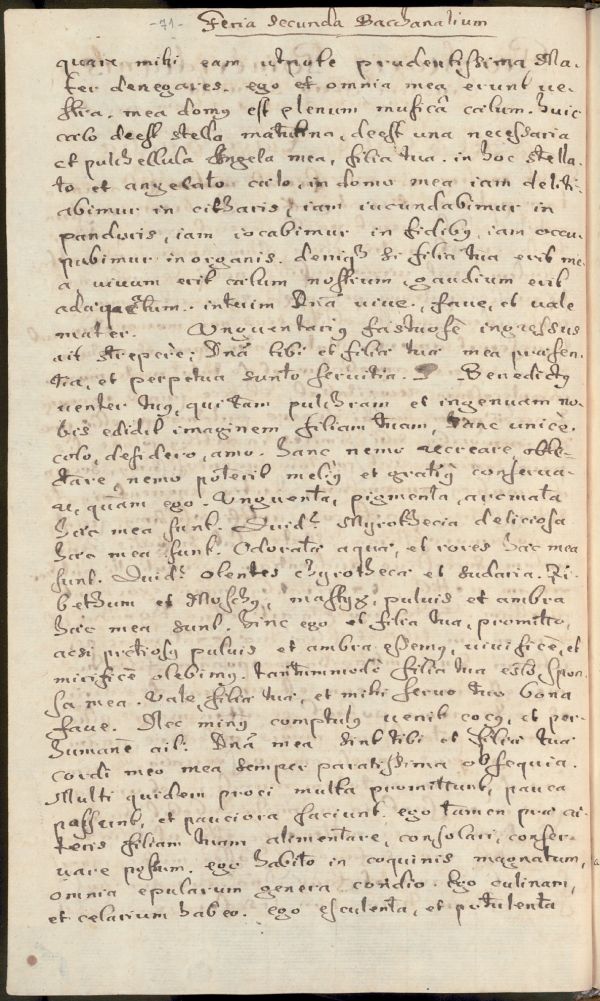 -71- Feria secunda Bacchanalium
quare mihi eam utpote prudentissima Ma-
ter denegares. ego et omnia mea erunt ve-
stra. mea domus est plenum musicâ cælum. huic
cælo deest stella matutina, deest una necessaria
et pulchellula Angela mea, filia tua. in hoc stella-
to et angelato cælo, in domo mea iam deliti-
abimur in citharis, iam iucundabimur in
panduris, iam iocabimur in fidibus, iam occu-
pabimur in organis. deniqz si filia tua erit me-
a, vivum erit cælum nostrum, gaudium erit
adæquatum. interim Dnã vive, fave, et vale
mater. Unguentarius fastuosè ingressus
ait strepere: Dnã tibi et filiæ tuæ mea præsen-
tia, et perpetua sunto servitia. Benedictus
venter tuus, qui tam pulchram et ingenuam no-
bis edidit imaginem filiam tuam, hanc unicè
colo, desidero, amo. hanc nemo recreare, oble-
ctare, nemo poterit melius et gratius conserva-
re, quàm ego. Unguenta, pigmenta, aromata
hæc mea sunt. Quid? Myrothecia deliciosa
hæc mea sunt. Odoratæ aquæ, et rores hæc mea
sunt. Quid? olentes chyrothecæ et sudaria. Zi-
bethum et Moschus, mastyx, pulvis et ambra
hæc mea sunt. hinc ego et filia tua, promitto,
acsi pretiosus pulvis et ambra essemus, vivificè, et
mirificè olebimus. tantummodò filia tua esto spon-
sa mea. Vale, filiæ tuæ, et mihi servo tuo bona
fave. Nec minus comptulus venit cocus, et per-
humanè ait: Dnã mea sint tibi et filiæ tuæ
cordi meo mea semper paratissima obsequia.
Multi quidem proci multa promittunt, pauca
possunt, et pauciora faciunt. ego tamen præ cæ-
teris filiam tuam alimentare, consolari, conser-
vare possum. ego habito in coquinis magnatum,
omnia epularum genera condio. Ego culinam,
et celarium habeo. ego esculenta, et potulenta